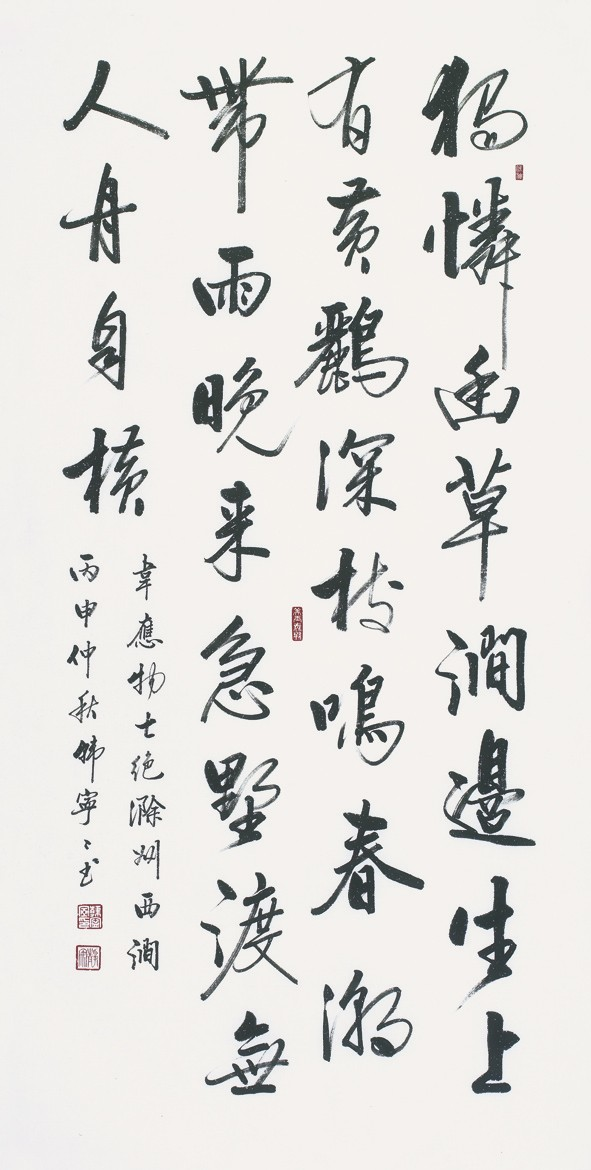 獨憐幽草澗邊生上
有黃鸝深樹鳴春潮
帶雨晚来急墅渡無
人舟自橫
韋應物七絕滁州西澗
丙申仲秋寧〻书